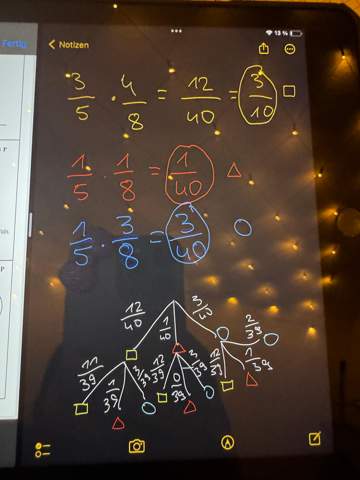 Fertig
Notizen
13 %
3/5 · 4/8 = 12/40 = 3/10 □
1/5 · 1/8 = 1/40 △
1/5 · 3/8 = 3/40 ○
12/40 1/40 3/40
11/39 1/39 3/39 12/39 0/39 3/39 12/39 1/39 2/39